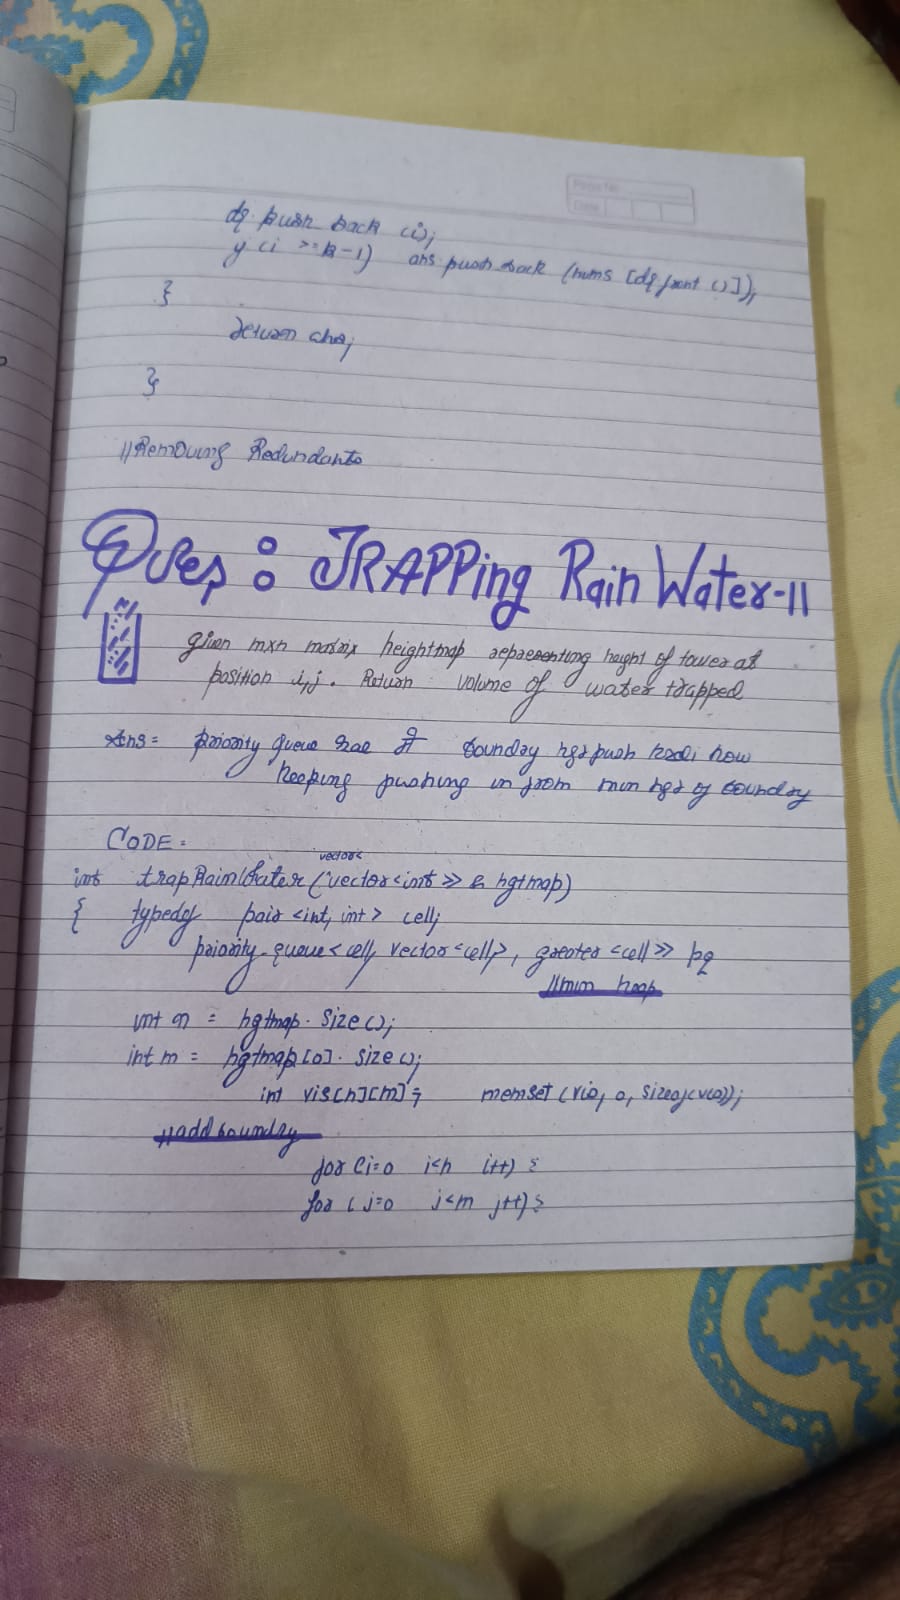 Page No.
Date
dq. push back (i);
if (i >= k-1) ans. push back (nums [dq. front ()]);
}
return ans;
}
//Removing Redundants
Ques: TRAPPing Rain Water-II
given mxn matrix heightmap representing height of tower at
position i,j. Return volume of water trapped.
Ans = priority queue boundry hgt push now
keeping pushing in from min hgt of boundry
CODE =
vector<
int trapRainWater (vector<int>> & hgtmap)
{ typedef pair <int, int> cell;
priority-queue< cell, vector<cell>, greater <cell>> pq
//min heap
int n = hgtmap. size();
int m = hgtmap[0]. size();
int vis[n][m]; memset (vis, 0, sizeof(vis));
//add boundry
for (i=0 i<n i++) {
for (j=0 j<m j++) {